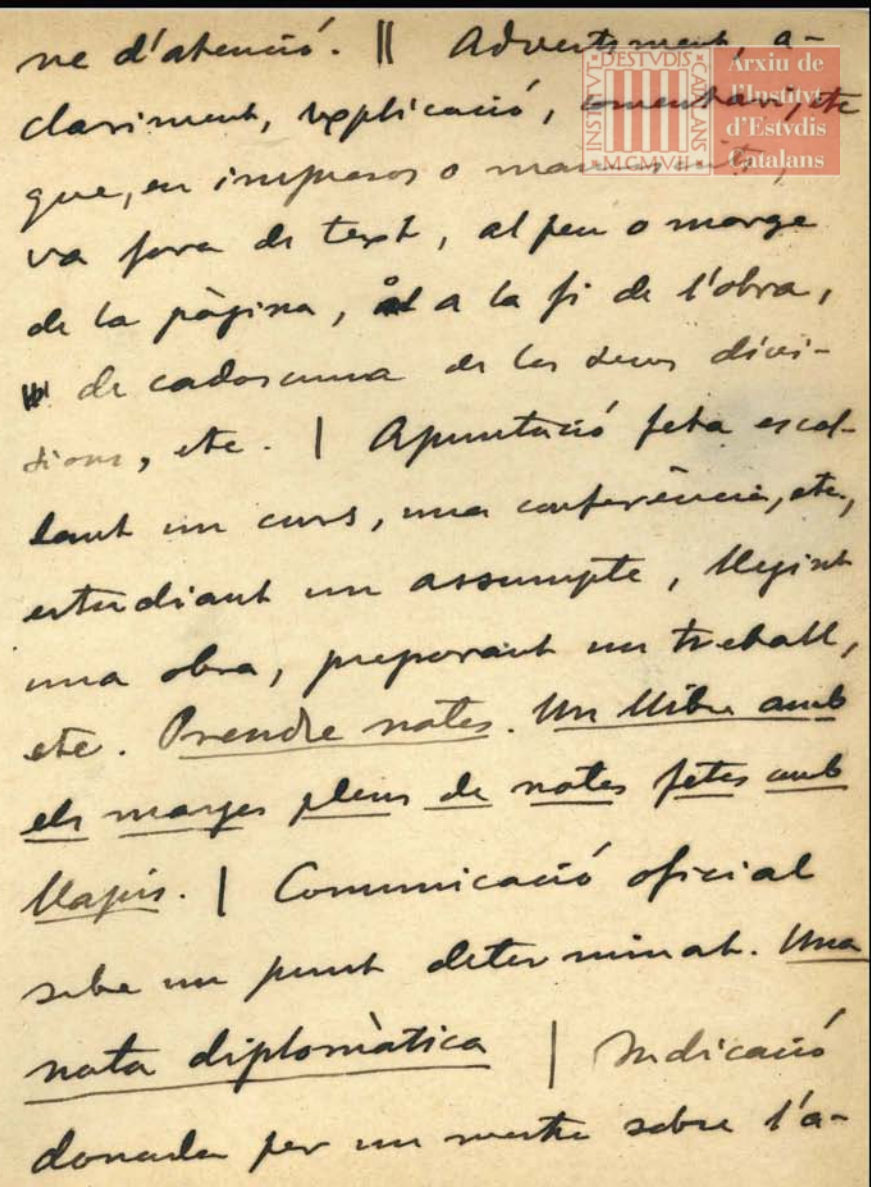 ne d'atenció. || Advertiment, a-
clariment, explicació, comentari, etc
que, en impresos o manuscrits,
va fora de text, al peu o marge
de la pàgina, o a la fi de l'obra,
de cadascuna de les seves divi-
sions, etc. | Apuntació feta escol-
tant un curs, una conferència, etc,
estudiant un assumpte, llegint
una obra, preparant un treball,
etc. Prendre notes. Un llibre amb
els marges plens de notes fetes amb
llapis. | Comunicació oficial
sobre un punt determinat. Una
nota diplomàtica | Indicació
donada per un mestre sobre l'a-
INSTITVT D'ESTVDIS CATALANS
MCMVII
Arxiu de
l'Institvt
d'Estvdis
Catalans